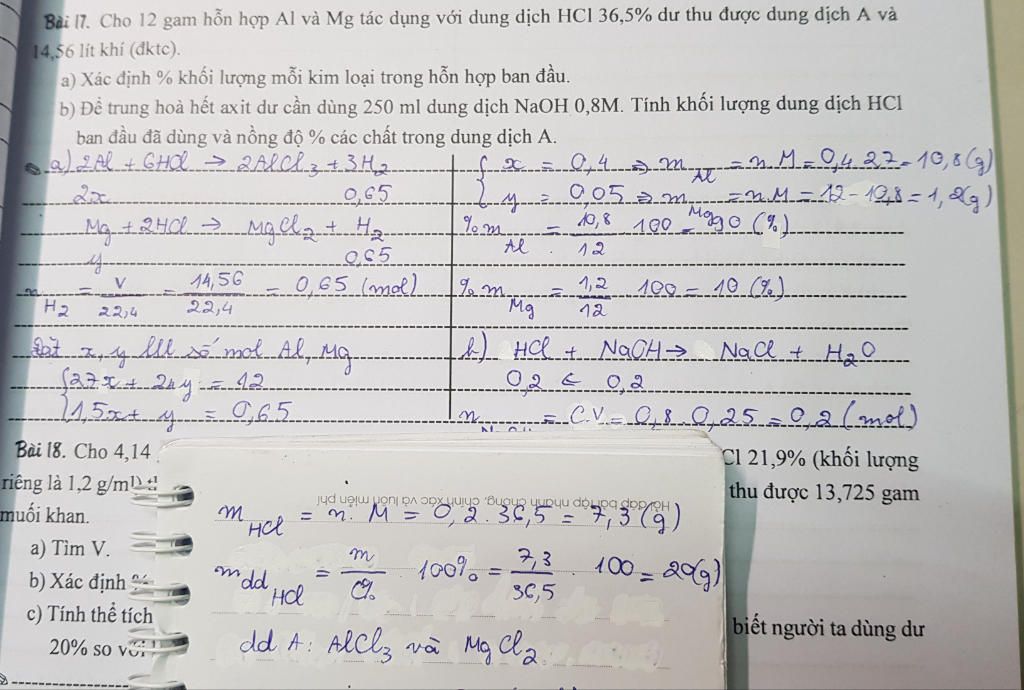 Bài 17. Cho 12 gam hỗn hợp Al và Mg tác dụng với dung dịch HCl 36,5% dư thu được dung dịch A và
14,56 lít khí (đktc).
a) Xác định % khối lượng mỗi kim loại trong hỗn hợp ban đầu.
b) Để trung hoà hết axit dư cần dùng 250 ml dung dịch NaOH 0,8M. Tính khối lượng dung dịch HCl
ban đầu đã dùng và nồng độ % các chất trong dung dịch A.
a) 2Al + 6HCl → 2AlCl3 + 3H2
2x 0,65
Mg + 2HCl → MgCl2 + H2
y 0,65
n H2 = V/22,4 = 14,56/22,4 = 0,65 (mol)
Đặt x, y lll số mol Al, Mg
{ 27x + 24y = 12
1,5x + y = 0,65
{ x = 0,4 => m Al = n.M = 0,4.27 = 10,8(g)
y = 0,05 => m Mg = n.M = 12 - 10,8 = 1,2(g)
%m Al = 10,8/12 . 100 = 90 (%)
%m Mg = 1,2/12 . 100 = 10 (%)
b) HCl + NaOH → NaCl + H2O
0,2 ← 0,2
n = C.V = 0,8.0,25 = 0,2 (mol)
Bài 18. Cho 4,14 Cl 21,9% (khối lượng
riêng là 1,2 g/ml) thu được 13,725 gam
muối khan.
a) Tìm V.
b) Xác định %
c) Tính thể tích biết người ta dùng dư
20% so với
Hỏi đáp bài tập nhanh chóng, chính xác và luôn miễn phí
m HCl = n.M = 0,2.36,5 = 7,3(g)
mdd HCl = m/C% . 100% = 7,3/36,5 . 100 = 20(g)
dd A: AlCl3 và MgCl2